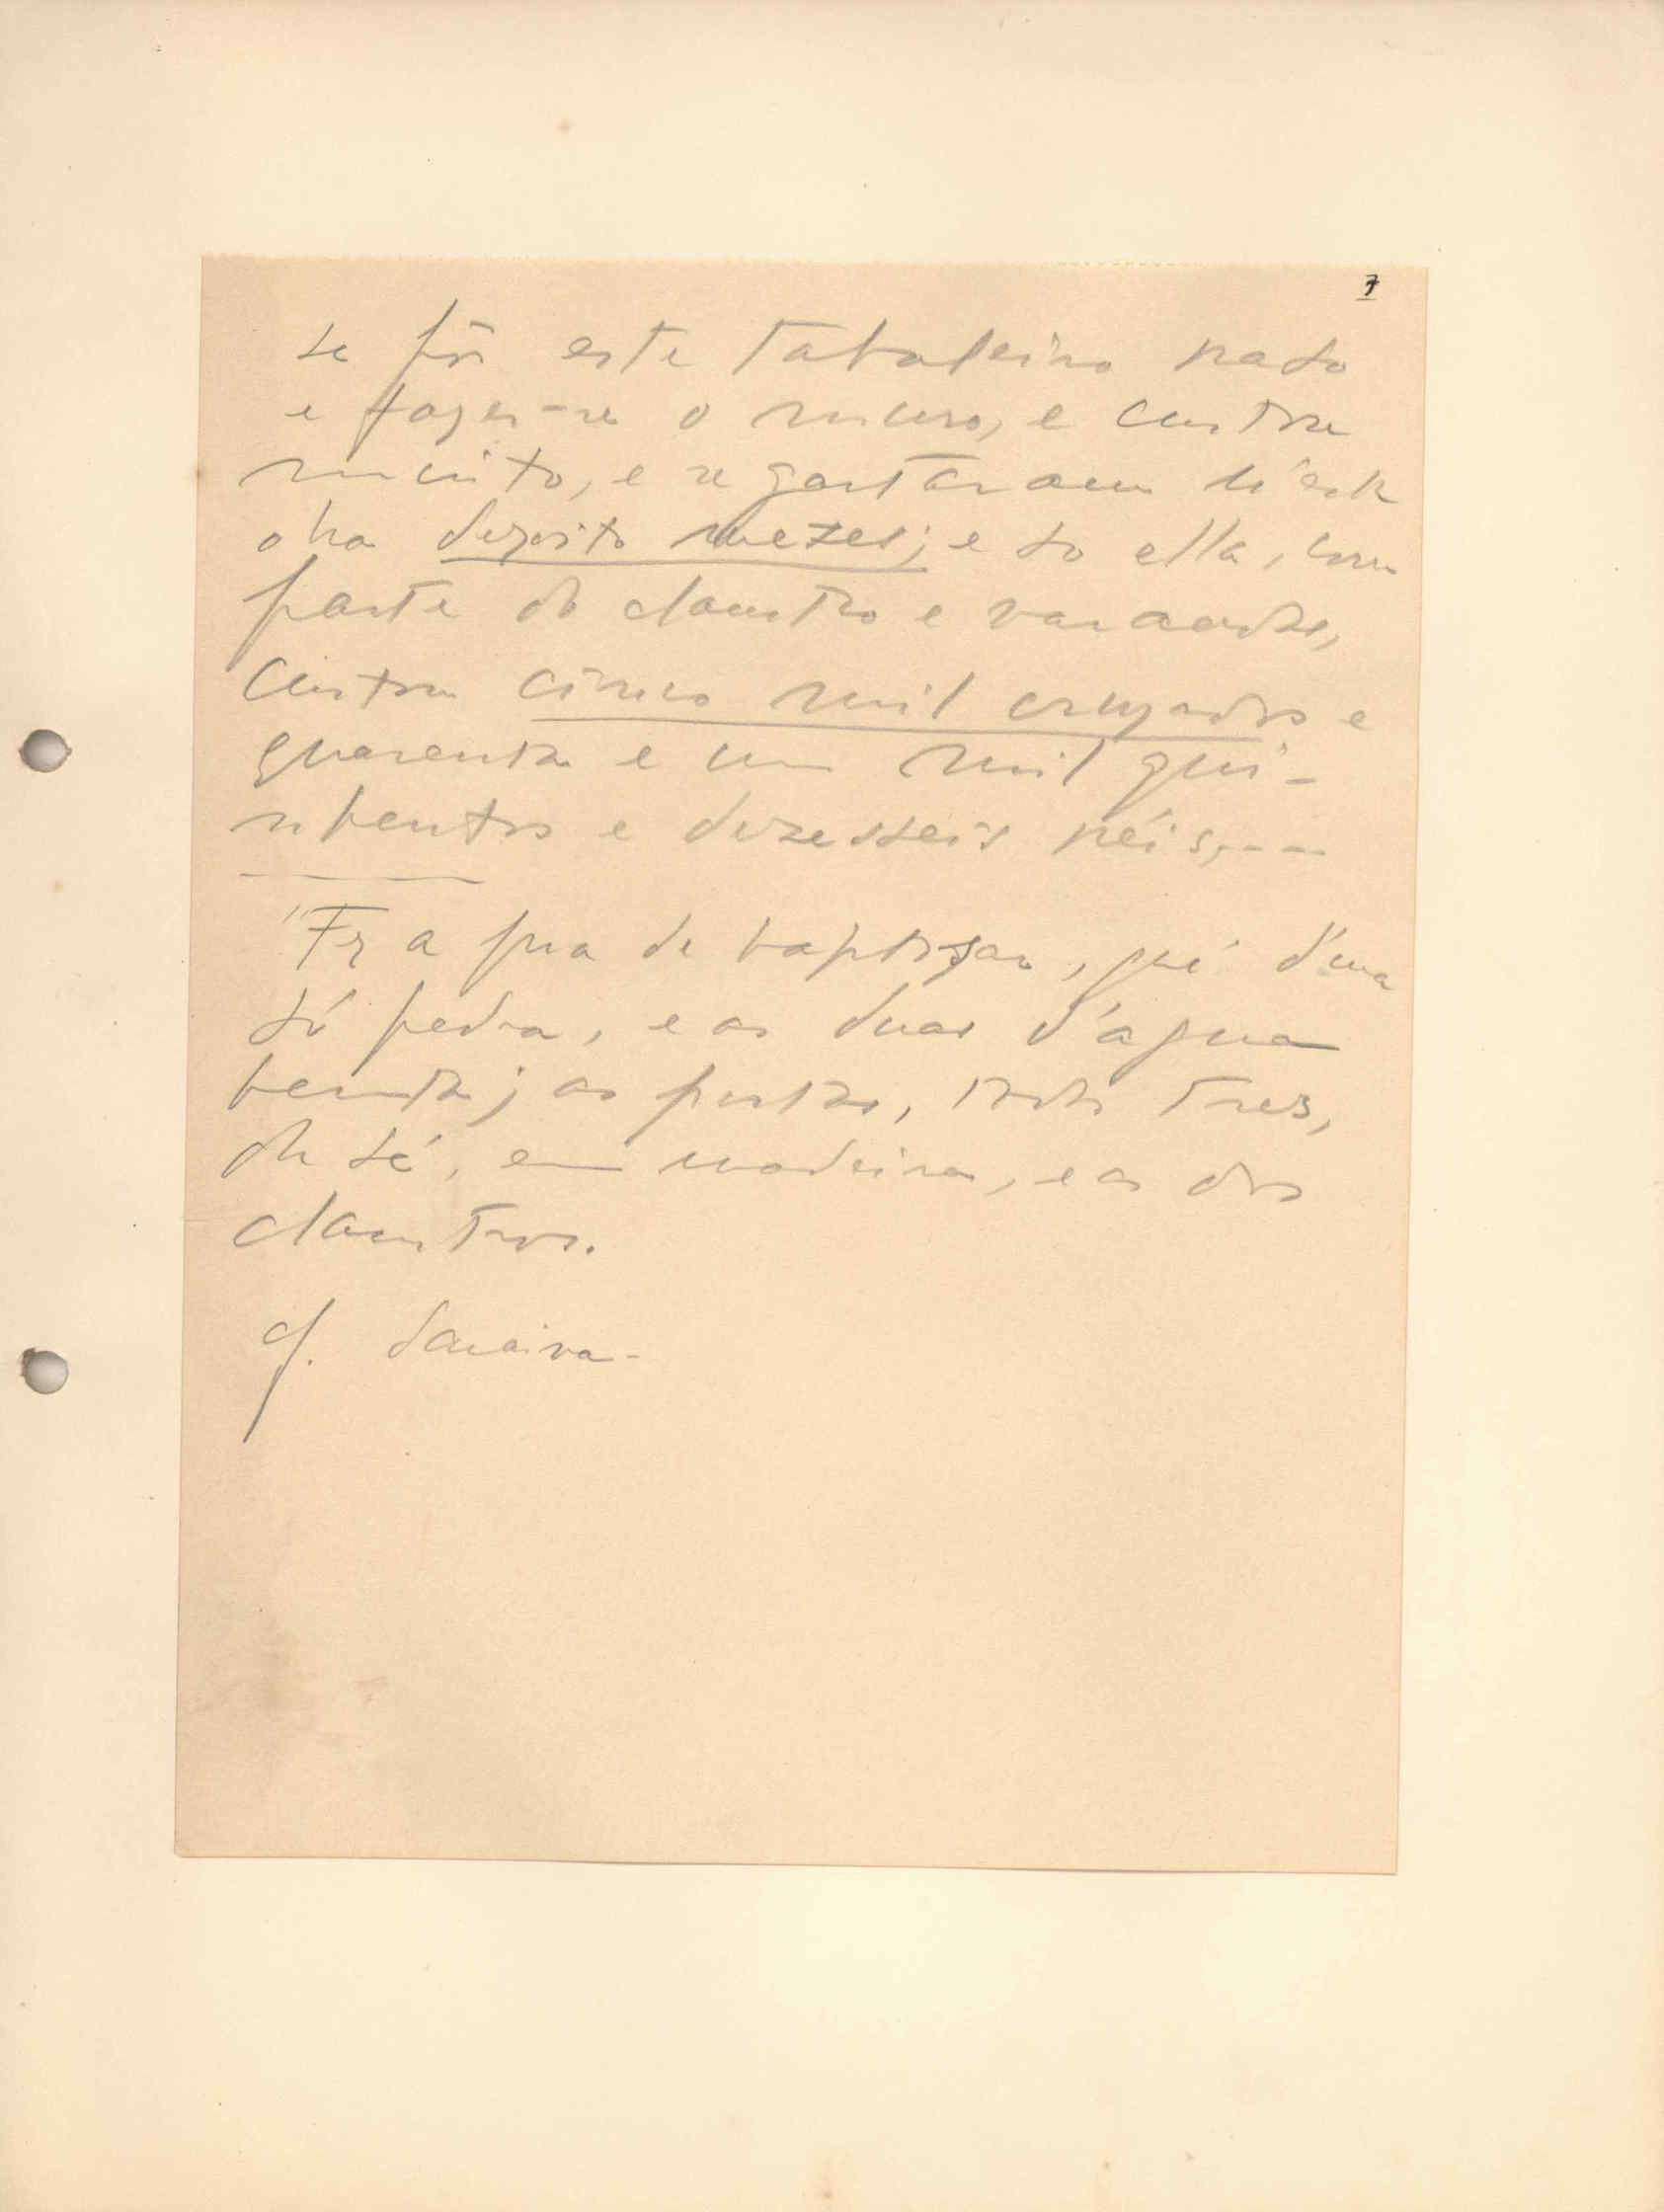 7
se pôr este taboleiro raso
e fazer-se o muro, e custou
muito, e se gastaram n'esta
obra dezoito mezes; e só ella, com
parte do claustro e varandas,
custou cinco mil cruzados e
quarenta e um mil qui-
nhentos e dezesseis réis,---
"Fez a pia de baptizar, que é d'uma
só pedra, e as duas d'agua
benta; as portas, todas tres,
da sé, em madeira, e as dos
claustros.
J. Saraiva-